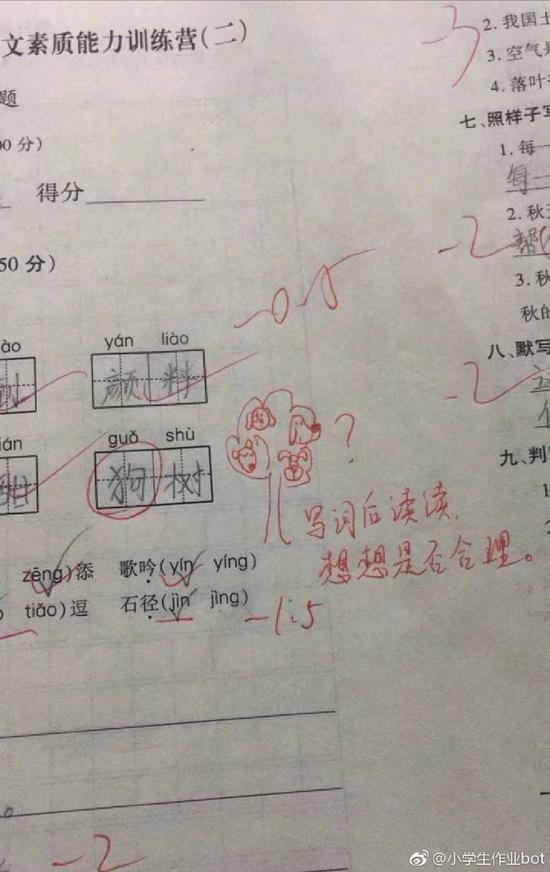 文素质能力训练营(二)
题
00 分)
得分
50 分)
-0.5
ào
yán liào
颜料
ián
guǒ shù
甜
狗树
?
写词后读读,
想想是否合理。
zēng)添 歌吟(yín yíng)
tiǎo)逗 石径(jìn jìng)
-1.5
-2
-3
2. 我国土
3. 空气
4. 落叶
七、照样子写
1. 每一
每一
2. 秋
-2
帮
3. 秋
秋的
八、默写
-2
九、判
1
@小学生作业bot